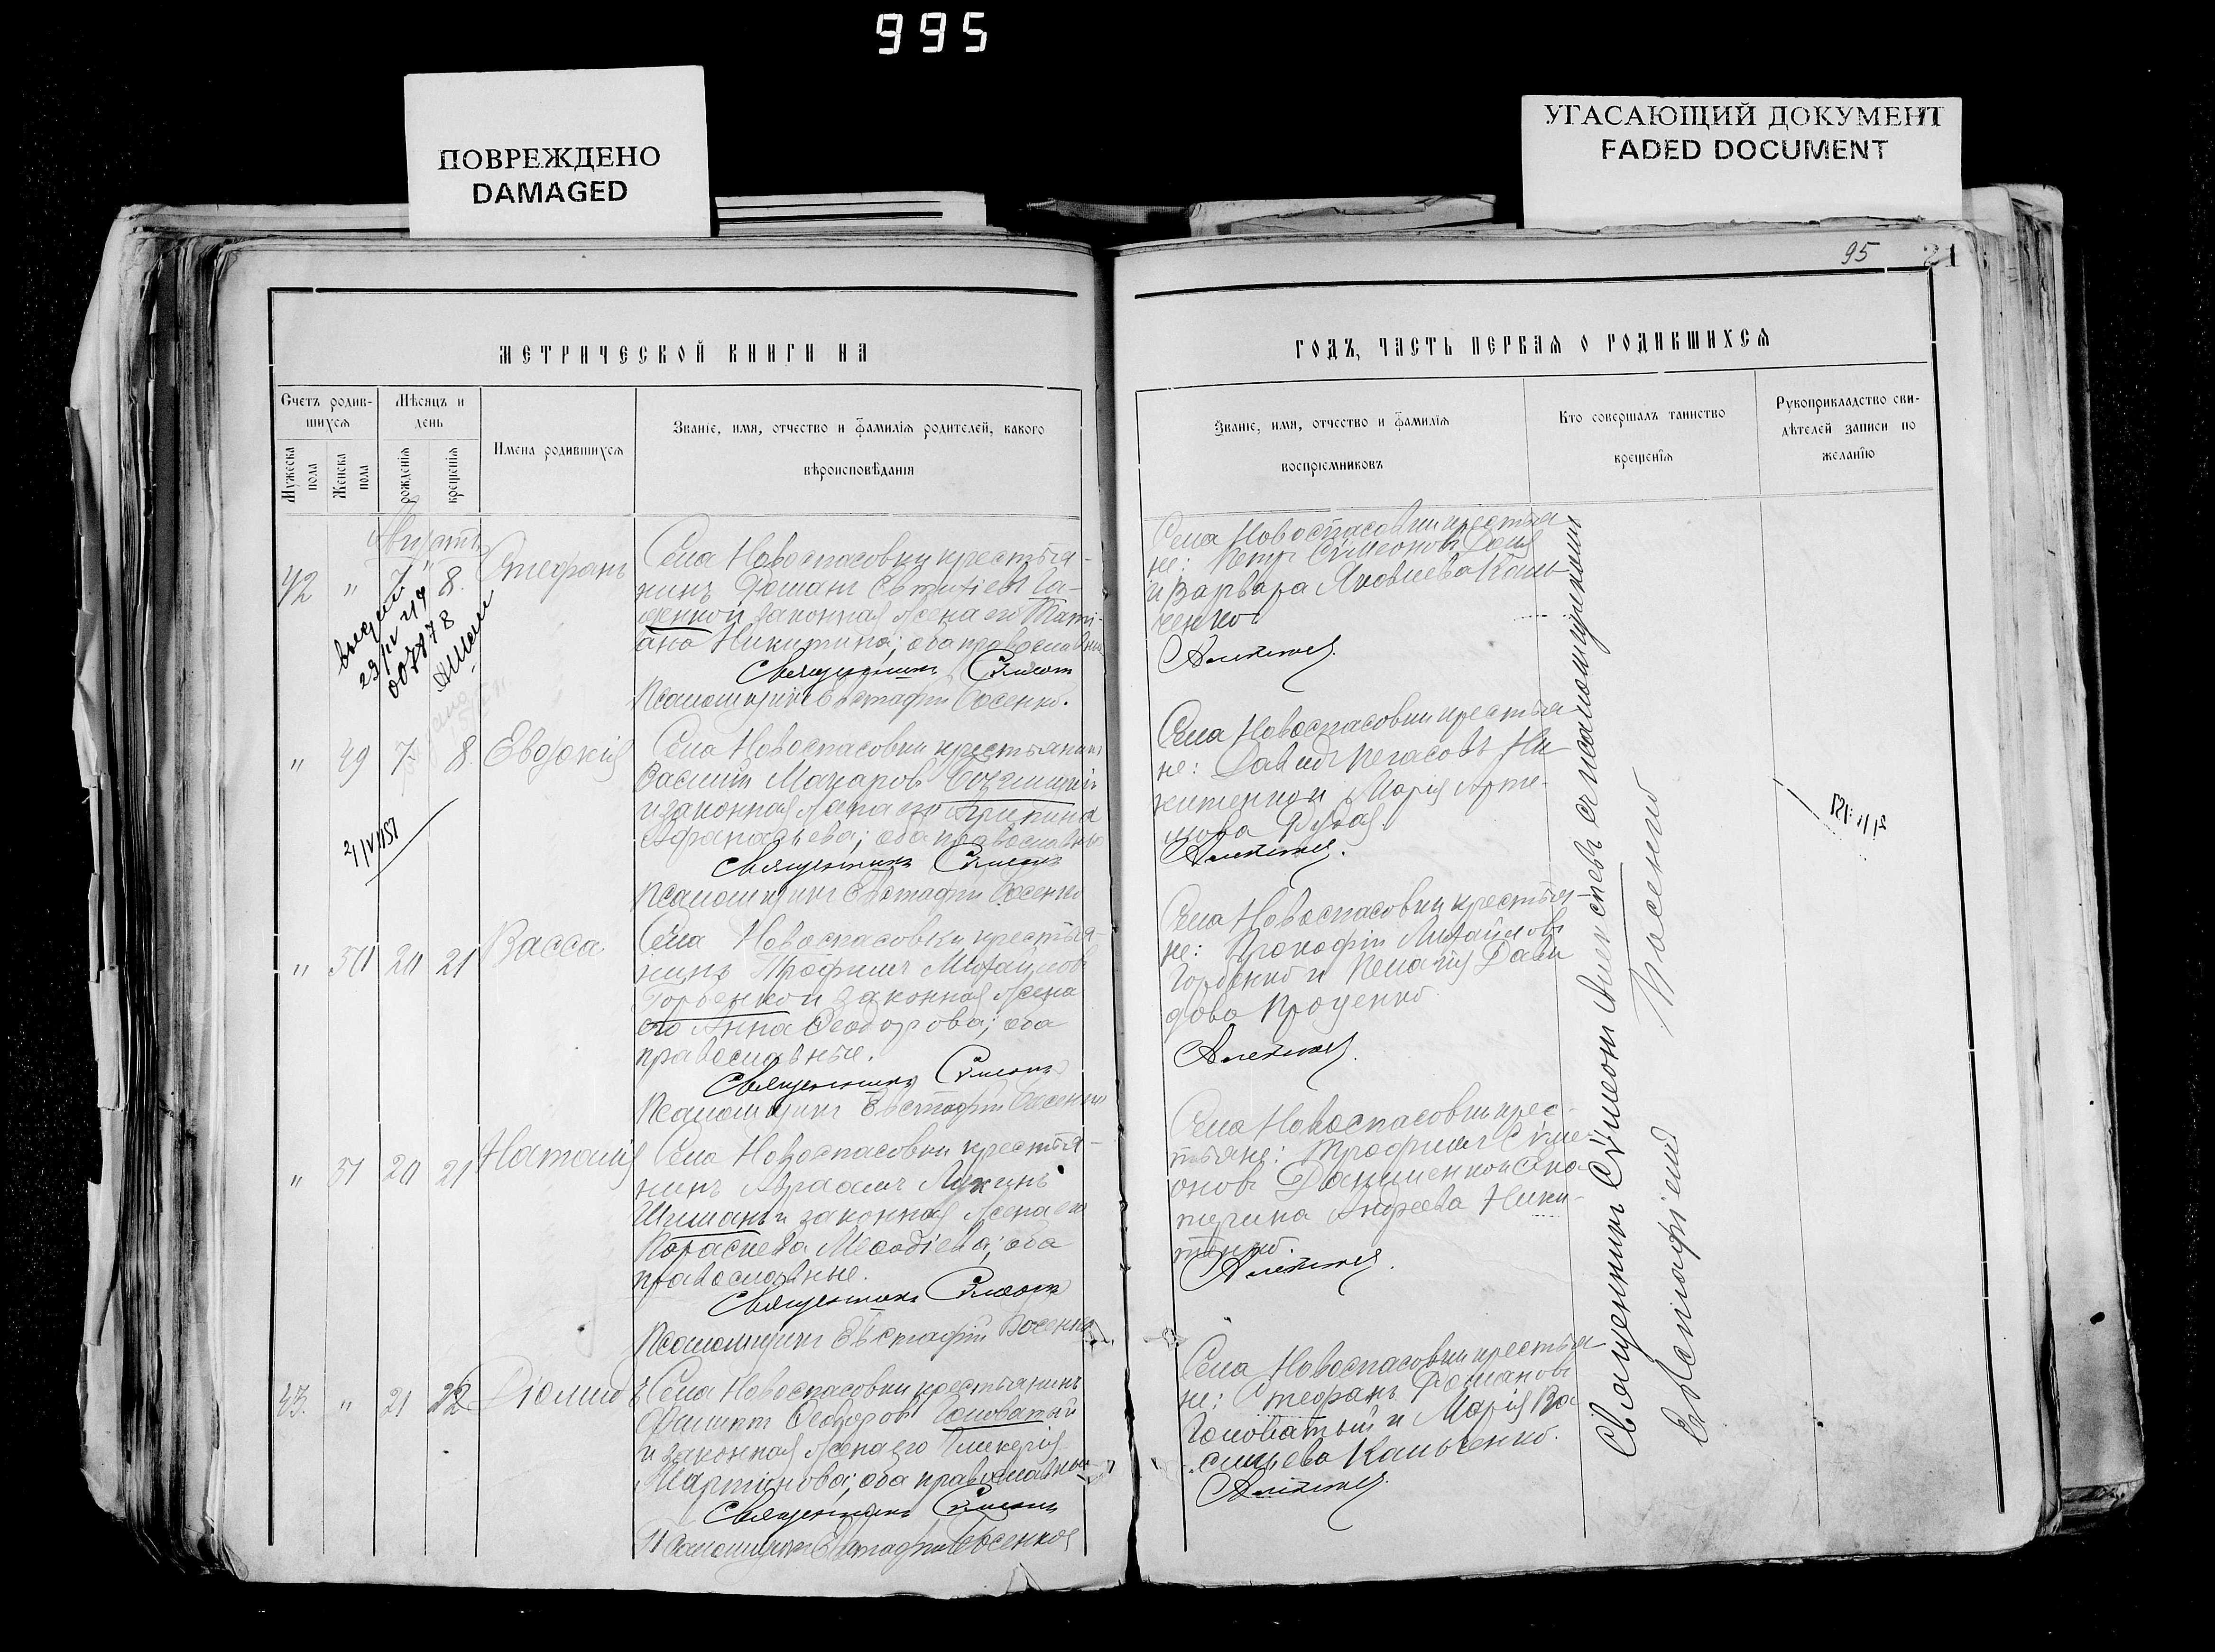 995
ПОВРЕЖДЕНО
DAMAGED
УГАСАЮЩИЙ ДОКУМЕНТ
FADED DOCUMENT
95 21
МЕТРИЧЕСКОЙ КНИГИ НА
Счетъ родив-
шихся
Мѣсяцъ и
день
Мужеска
пола
Женска
пола
рожденія
крещенія
Имена родившихся
Званіе, имя, отчество и фамилія родителей, какого
вѣроисповѣданія
Августъ
42 " 7 8. Стефанъ
Села Новоспасовки крестья-
нинъ Романъ Евтихіевъ
законная жена его Тати-
ана Никитина; оба православны
Священникъ Симеонъ
Псаломщикъ Евстафій Восенко.
выдан
007878
" 49 7. 8. Евдокія
Села Новоспасовки крестьянинъ
Василій Макаровъ
и законная жена его Агрипина
Афанасьева; оба православные
Священникъ Симеонъ
Псаломщикъ Евстафій Восенко
" 50 20 21 Васса
Села Новоспасовки крестья-
нинъ Трофимъ Михайловъ
Горбенко и законная жена
его Анна Феодорова; оба
православные.
Священникъ Симеонъ
Псаломщикъ Евстафій Восенко
" 51 20 21 Наталія
Села Новоспасовки крестья-
нинъ Авраамъ Лукинъ
Шишанъ и законная жена его
Параскева Меѳодіева; оба
православные.
Священникъ Симеонъ
Псаломщикъ Евстафій Восенко
43. " 21 22 Діомидъ
Села Новоспасовки крестьянинъ
Филиппъ Феодоровъ Головатый
и законная жена его Гликерія
Мартинова; оба православные
Священникъ Симеонъ
Псаломщикъ Евстафій Восенко
ГОДЪ, ЧАСТЬ ПЕРВАЯ О РОДИВШИХСЯ
Званіе, имя, отчество и фамилія
воспріемниковъ
Кто совершалъ таинство
крещенія
Рукоприкладство сви-
дѣтелей записи по
желанію
Села Новоспасовки крестья-
не: Петръ Симеоновъ
и Варвара Яковлева Каль-
ченко
Алексѣевъ.
Села Новоспасовки крестья-
не: Давидъ Пегасовъ Ни-
китенко и Марія Арте-
мова Рудая.
Алексѣевъ.
Села Новоспасовки крестья-
не: Прокофій Михайловъ
Горбенко и Пелагія Дави-
дова Проценко.
Алексѣевъ.
Села Новоспасовки крес-
тьяне: Трофимъ Симе-
оновъ Данименко и Ека-
терина Андреева Ники-
тенко.
Алексѣевъ.
Села Новоспасовки крестья-
не: Стефанъ Романовъ
Головатый и Марія Ва-
сильева Кальченко.
Алексѣевъ.
Священникъ Симеонъ Алексѣевъ съ псаломщикомъ
Евстафіемъ Восенко